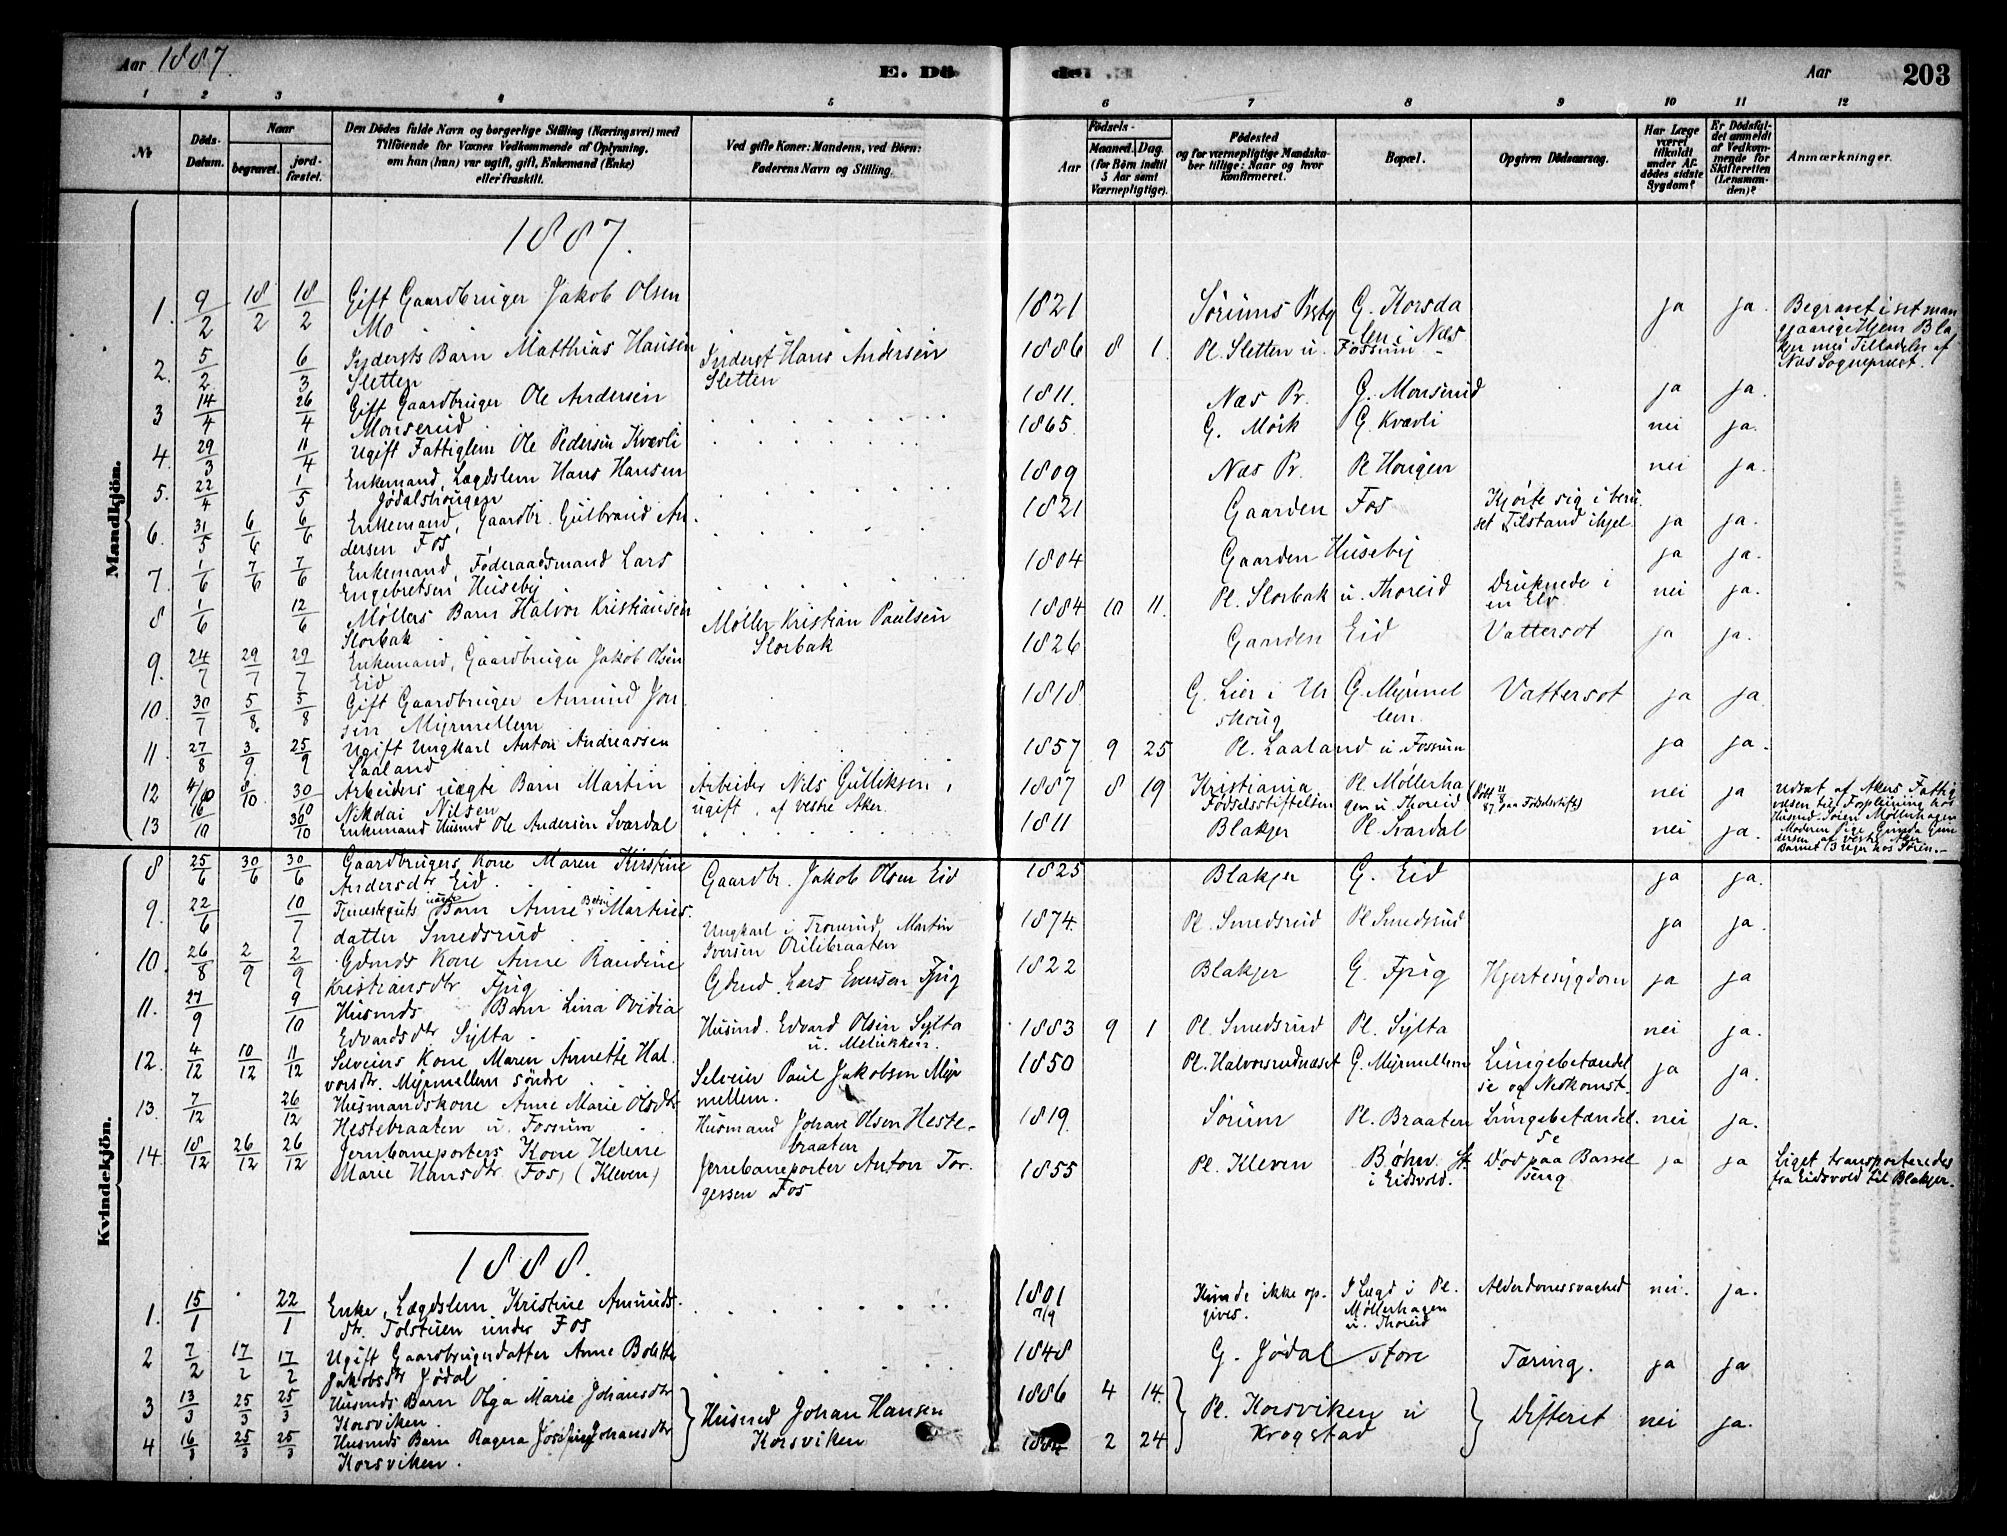 Aar 1887.
E. Dö-
de.
Aar
203
1 2 3 4 5 6 7 8 9 10 11 12
No
Döds-Datum.
Naar
begravet.
jord-fæstet.
Den Dödes fulde Navn og borgerlige Stilling (Næringsvei) med
Tilföiende for Voxnes Vedkommende af Oplysning,
om han (hun) var ugift, gift, Enkemand (Enke)
eller fraskilt.
Ved gifte Koner: Mandens, ved Börn:
Faderens Navn og Stilling.
Födsels-
Aar
Maaned. Dag.
(for Börn indtil
5 Aar samt
Værnepligtige).
Födested
og for værnepligtige Mandska-
ber tillige: Naar og hvor
konfirmeret.
Bopæl.
Opgiven Dödsaarsag.
Har Læge
været
tilkaldt
under Af-
dödes sidste
Sygdom?
Er Dödsfal-
det anmeldt
af Vedkom-
mende for
Skifteretten
(Lensman-
den)?
Anmærkninger.
Mandkjön.
1887.
1. 9/2 18/2 18/2 Gift Gaardbruger Jakob Olsen
Mo
1821 Sörums Prstg G. Korsda
len i Næs
ja ja. Begravet i set man
gaarige Hjem Bla
kjer med Tilladelse af
Næs Sognepræst.
2. 5/2 6/3 Indersts Barn Matthias Hansen
Sletten
Inderst Hans Andersen
Sletten
1886 8 1. Pl. Sletten u. Fossum
3 14/4 26/4 Gift Gaardbruger Ole Andersen
Monserud
1811. Næs Pr. G. Monserud ja ja.
4. 29/3 11/4 Ugift Fattiglem Ole Pedersen Kvævli
1865. G. Mörk G. Kvævli nei ja.
5. 22/4 1/5 Enkemand, Lægdslem Hans Hansen
Jødalshougen
1809 Næs Pr. Pl Hougen nei ja.
6. 31/5 6/6 6/6 Enkemand, Gaardbr. Gulbrand An-
dersen Fos
1821 Gaarden Fos Kjørte sig i beru
set Tilstand ihjel ja ja.
7. 1/6 7/6 7/6 Enkemand, Føderaadsmand Lars
Engebretsen Huseby
1804 Gaarden Huseby ja ja.
8 1/6 12/6 Møllers Barn Halvor Kristiansen
Slorbak
Møller Kristian Paulsen
Slorbak
1884 10 11. Pl. Slorbak u. Thoreid Druknede i
en Elv nei ja.
9. 24/7 29/7 29/7 Enkemand, Gaardbruger Jakob Olsen
Eid
1826 Gaarden Eid Vattersot ja ja.
10. 30/7 5/8. 5/8 Gift Gaardbruger Amund Jon
sen Myrmellem
1818. G. Lier i Ur
skoug G. Myrmel
lem. Vattersot ja ja
11. 27/8 3/9. 25/9 Ugift Ungkarl Anton Andreassen
Laaland
1857 9 25 Pl. Laaland u. Fossum ja ja.
12 4/10 8/10 30/10 Arbeiders uægte Barn Martin
Nikolai Nilsen
Arbeider Nils Gulliksen,
ugift, af vestre Aker.
1887 8 19 Kristiania
Fødselsstiftelsen Pl Møllerha
gen u Thoreid
87 paa Fødselsstift.)
nei ja Udsat af Akers Fattig
væsen til Forpleining hos
Husmd. Søren Møllerhagen
Moderen Pige Gunda Gun
dersen af vestre Aker
Barnet 13 uger hos Søren.
13 16/10 30/10 Enkemand Husmd Ole Andersen Svardal
1811 Blakjer Pl. Svardal nei ja.
Kvindekjön.
8 25/6 30/6 30/6 Gaardbrugers Kone Maren Kirstine
Andersdtr Eid.
Gaardbr. Jakob Olsen Eid
1825 Blakjer G. Eid ja ja.
9. 22/6 10/7 Tjenesteguts uægte Barn Anne Martins
datter Smedsrud
Ungkarl i Martin
Iversen
1874. Pl. Smedsrud Pl Smedsrud ja ja.
10. 26/8 2/9 2/9 Gdmds Kone Anne Randine
Kristiansdtr Fjug
Gdmd. Lars Evensen Fjug
1822 Blakjer G. Fjug Hjertesygdom ja ja
11. 27/9 9/10 Husmds Barn Lina Ovidia
Edvardsdtr Sylta
Husmd. Edvard Olsen Sylta
1883 9 1 Pl. Smedsrud Pl. Sylta nei ja.
12. 4/12 10/12 11/12 Selveiers Kone Maren Annette Hal.
vorsdtr. Myrmellem söndre
Selveier Paul Jakobsen Myr
mellem.
1850 Pl. Halvorsrudnæset G. Myrmellem Lungebetændel
se og Nedkomst. ja ja.
13. 7/12 26/12 Husmandskone Anne Marie Olsdtr
Hestebraaten u. Fossum
Husmand Johan Olsen Heste-
braaten
1819. Sörum Pl. Braaten Lungebetændel.
se nei ja.
14. 18/12 26/12 26/12 Jernbaneporters Kone Helene
Marie Hansdtr (Fos) (Kleven)
Jernbaneporter Anton Tor
gersen Fos
1855 Pl. Kleven Bøhn St.
i Eidsvold. Død paa Barsel
seng ja ja Liget transporteredes
fra Eidsvold til Blakjer.
1888.
1. 15/1 22/1 Enke, Lægdslem Kristine Amunds-
dtr. Tolstuen under Fos
1801
7/9 Kunde ikke op-
gives. I Lægd i Pl.
Møllerhagen
u. Thoreid Alderdomssvaghed nei. ja.
2 7/2 17/2 17/2 Ugift Gaardbrugerdatter Anne Bolette
Jakobsdtr Jødal
1848 G. Jødal store Tæring. ja ja
3 13/3 25/3 25/3 Husmds Barn Olga Marie Johansdtr
Korsviken.
Husmd Johan Hansen
Korsviken
1886 4 14. Pl. Korsviken u
Krogstad Difterit nei ja.
4 16/3 25/3 25/3 Husmds Barn Ragna Josefine Johansdtr
Korsviken.
2 24